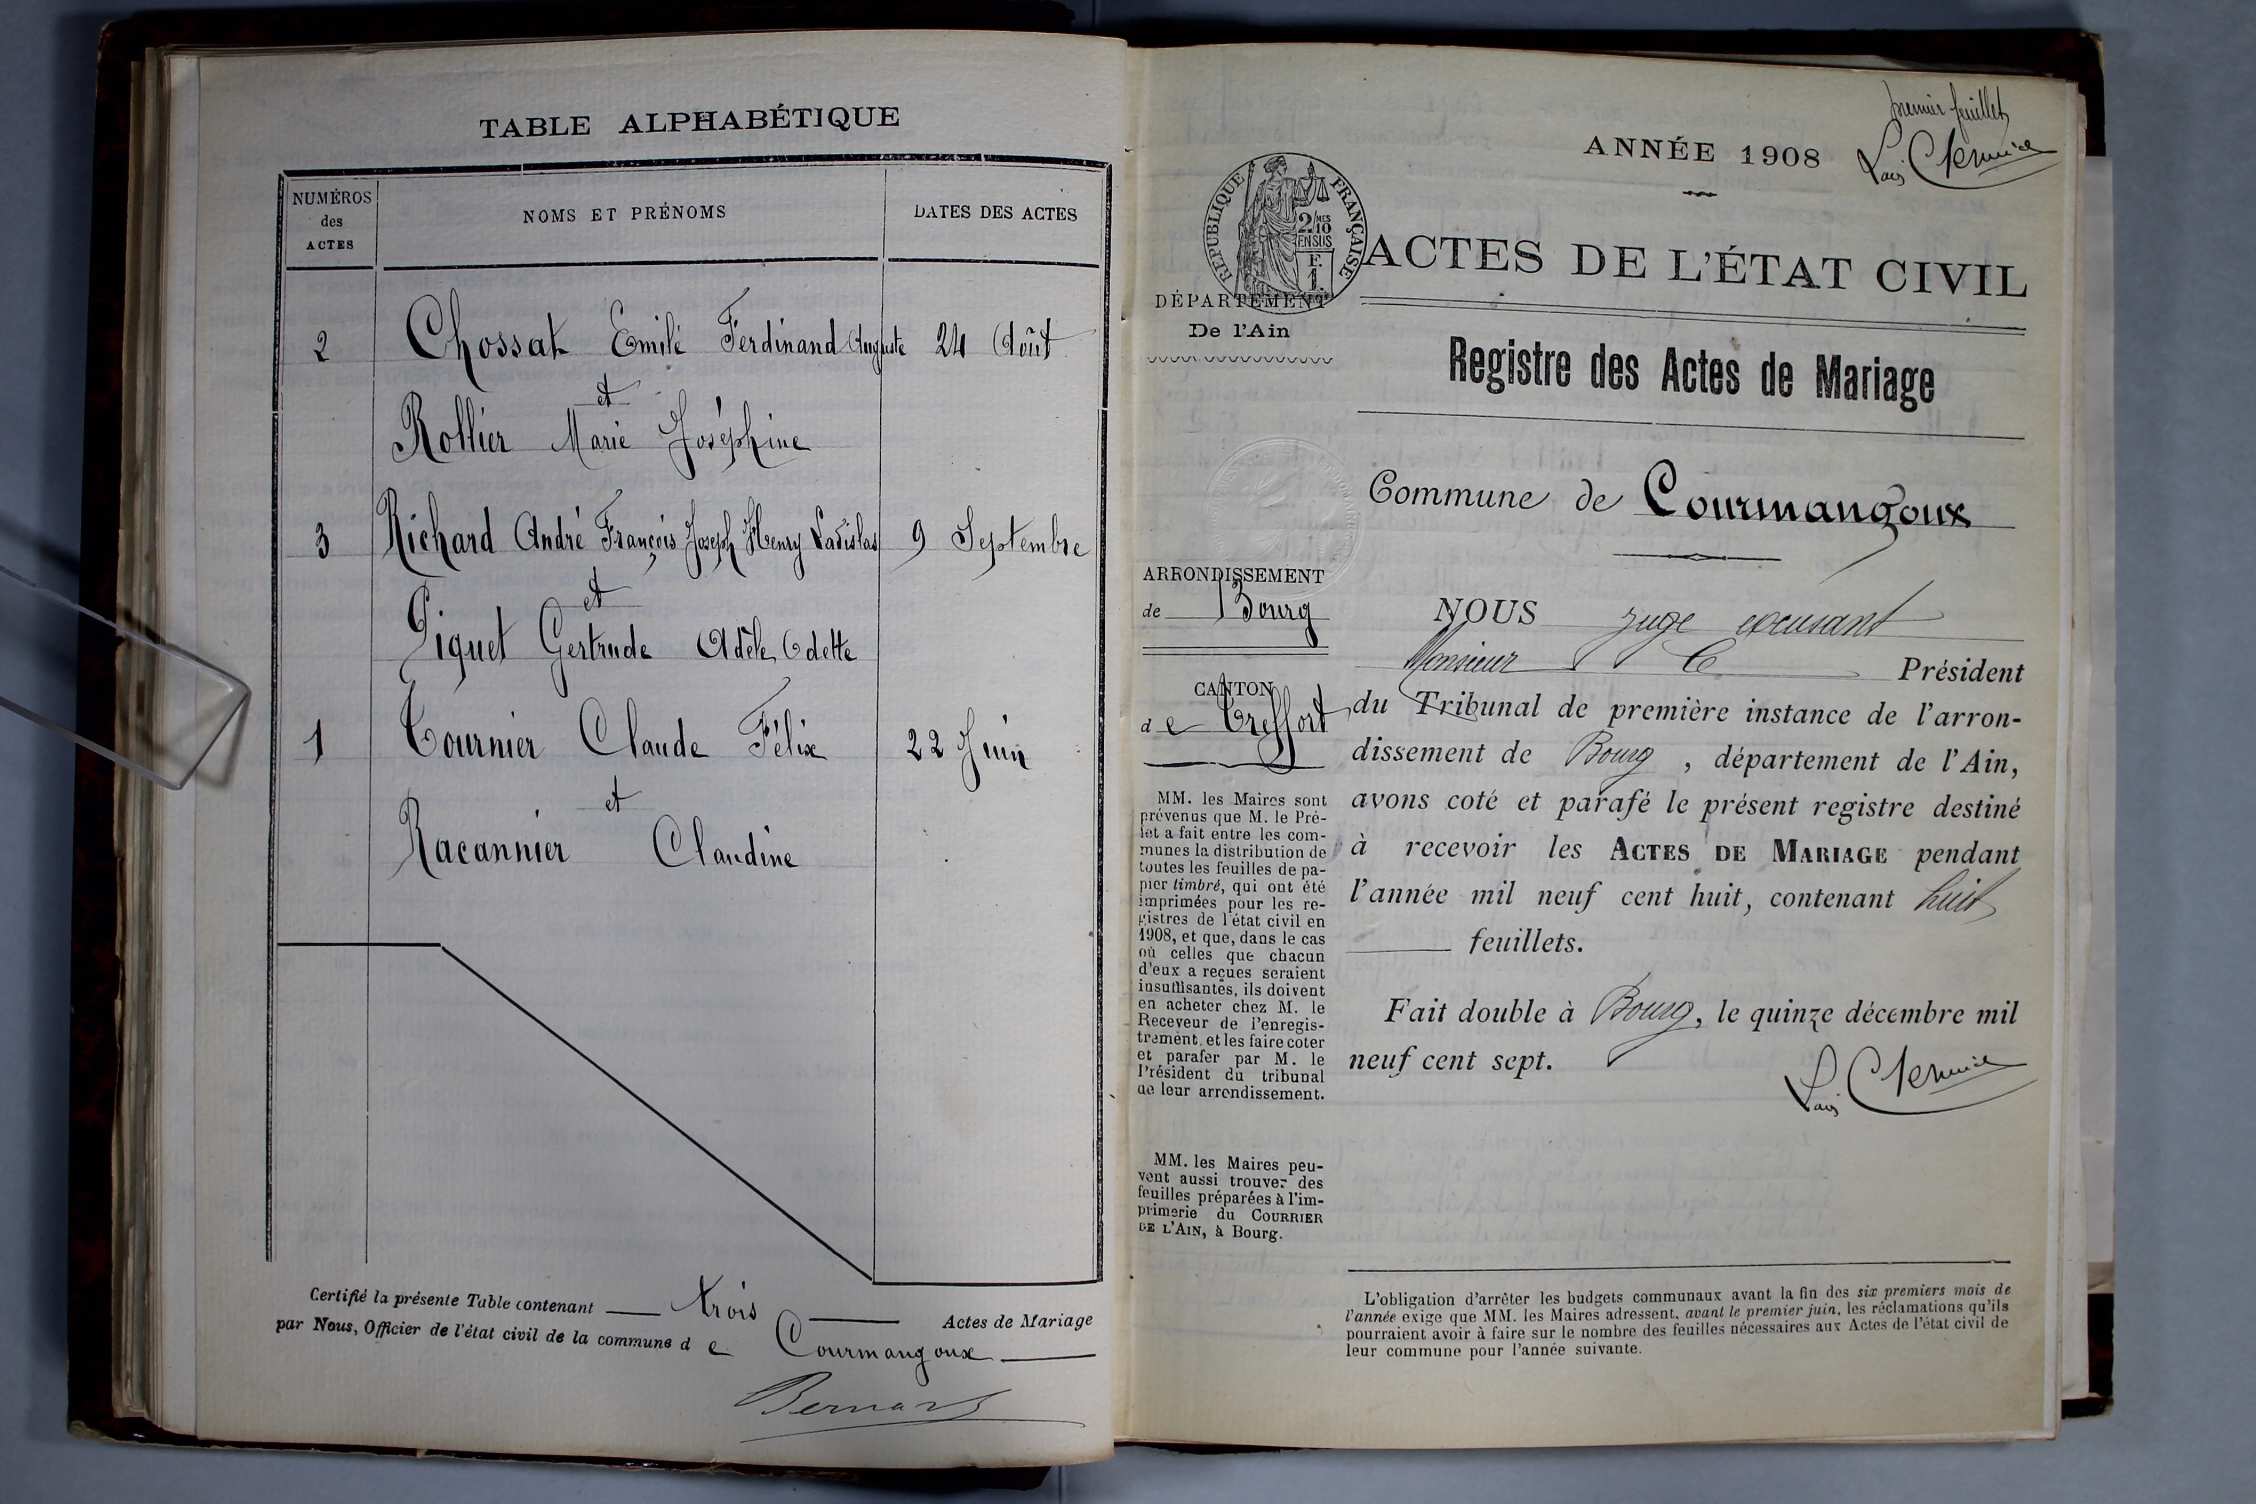 TABLE ALPHABÉTIQUE
NUMÉROS
des
ACTES
NOMS ET PRÉNOMS
DATES DES ACTES
2 Chossat Emile Ferdinand Auguste 24 Août
et
Rollier Marie Joséphine
3 Richard André François Joseph Henry Ladislas 9 Septembre
et
Piquet Gertrude Adèle Odette
1 Tournier Claude Félix 22 Juin
et
Racannier Claudine
Certifié la présente Table contenant trois Actes de Mariage
par Nous, Officier de l'état civil de la commune de Courmangoux
Bernard
premier feuillet
ANNÉE 1908
RÉPUBLIQUE FRANÇAISE
2/10 MES
EN SUS
F.
1.
ACTES DE L'ÉTAT CIVIL
DÉPARTEMENT
De l'Ain
Registre des Actes de Mariage
Commune de Courmangoux
ARRONDISSEMENT
de Bourg
CANTON
de Treffort
MM. les Maires sont
prévenus que M. le Pré-
fet a fait entre les com-
munes la distribution de
toutes les feuilles de pa-
pier timbré, qui ont été
imprimées pour les re-
gistres de l'état civil en
1908, et que, dans le cas
où celles que chacun
d'eux a reçues seraient
insuffisantes, ils doivent
en acheter chez M. le
Receveur de l'enregis-
trement, et les faire coter
et parafer par M. le
Président du tribunal
de leur arrondissement.
MM. les Maires peu-
vent aussi trouver des
feuilles préparées à l'im-
primerie du COURRIER
DE L'AIN, à Bourg.
NOUS juge excusant
Monsieur le Président
du Tribunal de première instance de l'arron-
dissement de Bourg, département de l'Ain,
avons coté et parafé le présent registre destiné
à recevoir les ACTES DE MARIAGE pendant
l'année mil neuf cent huit, contenant huit
feuillets.
Fait double à Bourg, le quinze décembre mil
neuf cent sept.
L'obligation d'arrêter les budgets communaux avant la fin des six premiers mois de
l'année exige que MM. les Maires adressent, avant le premier juin, les réclamations qu'ils
pourraient avoir à faire sur le nombre des feuilles nécessaires aux Actes de l'état civil de
leur commune pour l'année suivante.